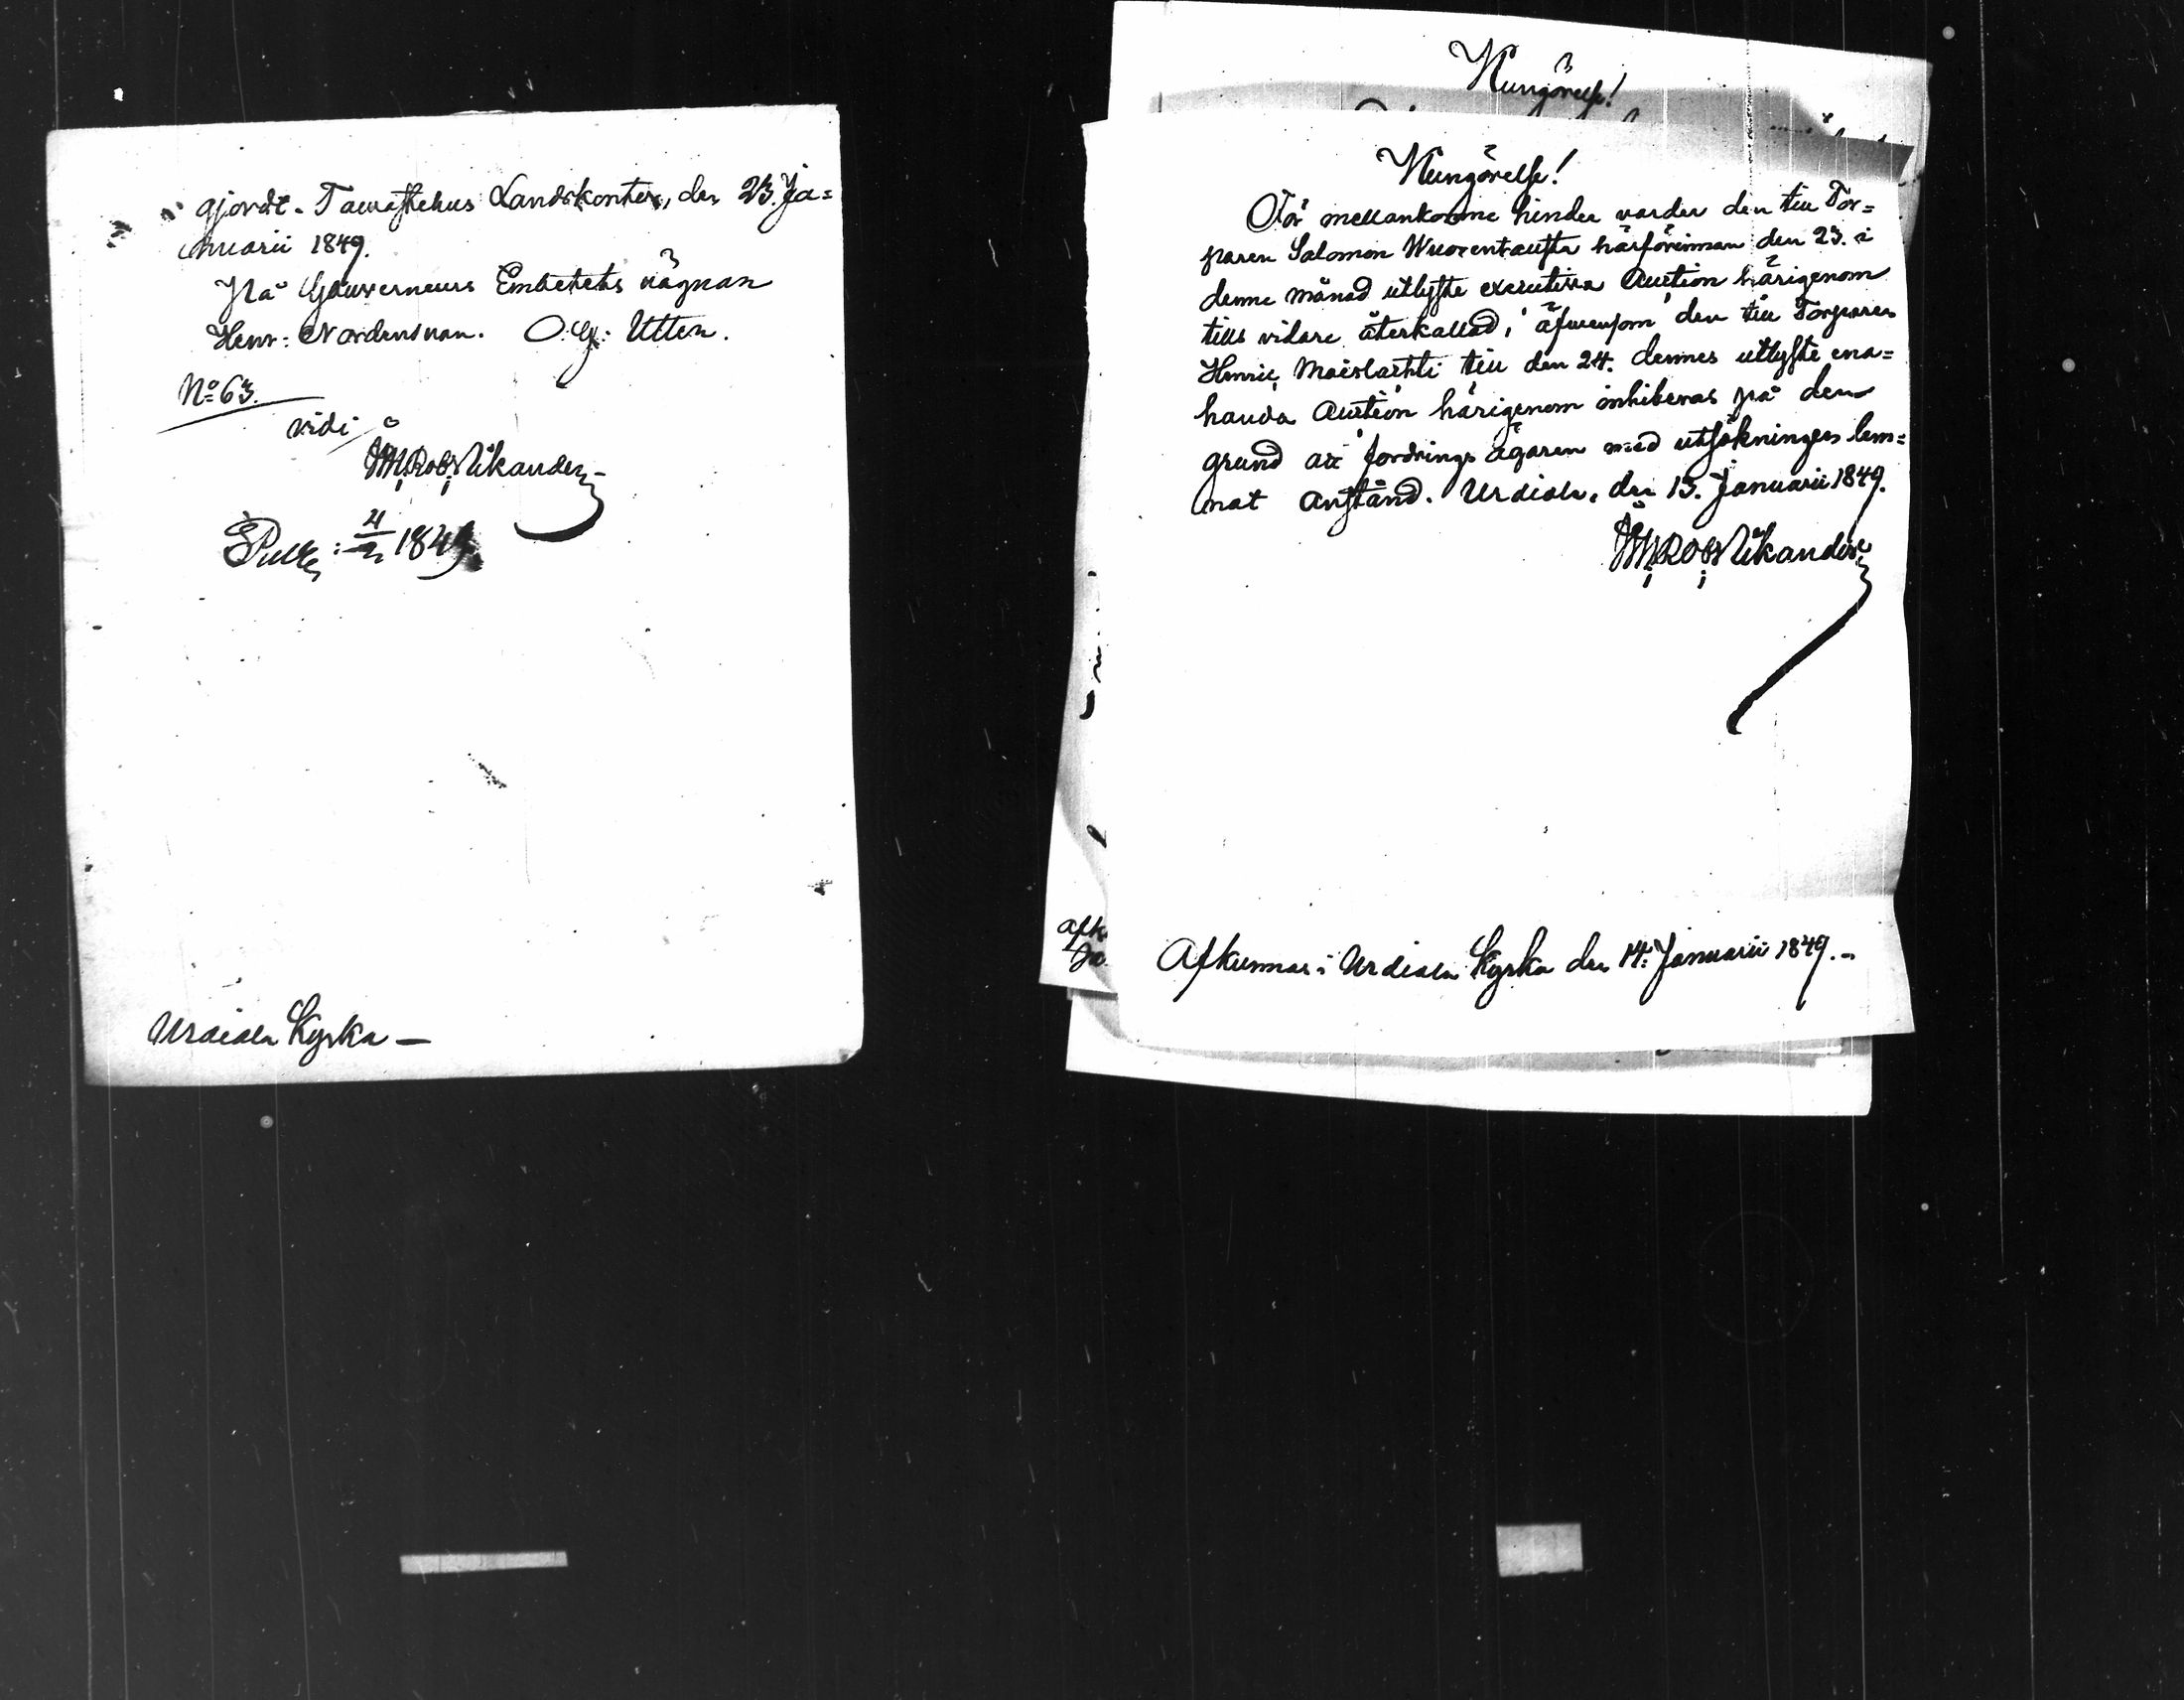 gjordt. Tawastehus Landskontor, den 23. Ja=
nuarii 1849.
På Gouverneurs Embetets vägnar
Henr: Nordensvan. O. G: Utter.
No 63.
vidi
Rob Nikander
Publ: 4/2 1849
Urdiala Kyrka —
Kungörelse!
Kungörelse!
För mellankomne hinder varder den till Tor=
paren Salomon Wuorentausta härförinnan den 23. i
denne månad utlyste executiva Auction härigenom
tills vidare återkallad, äfvensom den till Torparen
Henric Maislachti till den 24. dennes utlyste ena=
handa Auction härigenom inhiberas på den
grund att fordrings ägaren med utsökningen lem=
nat anstånd. Urdiala, den 13. Januarii 1849.
Rob Nikander
Afk
Ja
Afkunnas i Urdiala Kyrka den 14. Januarii 1849. –